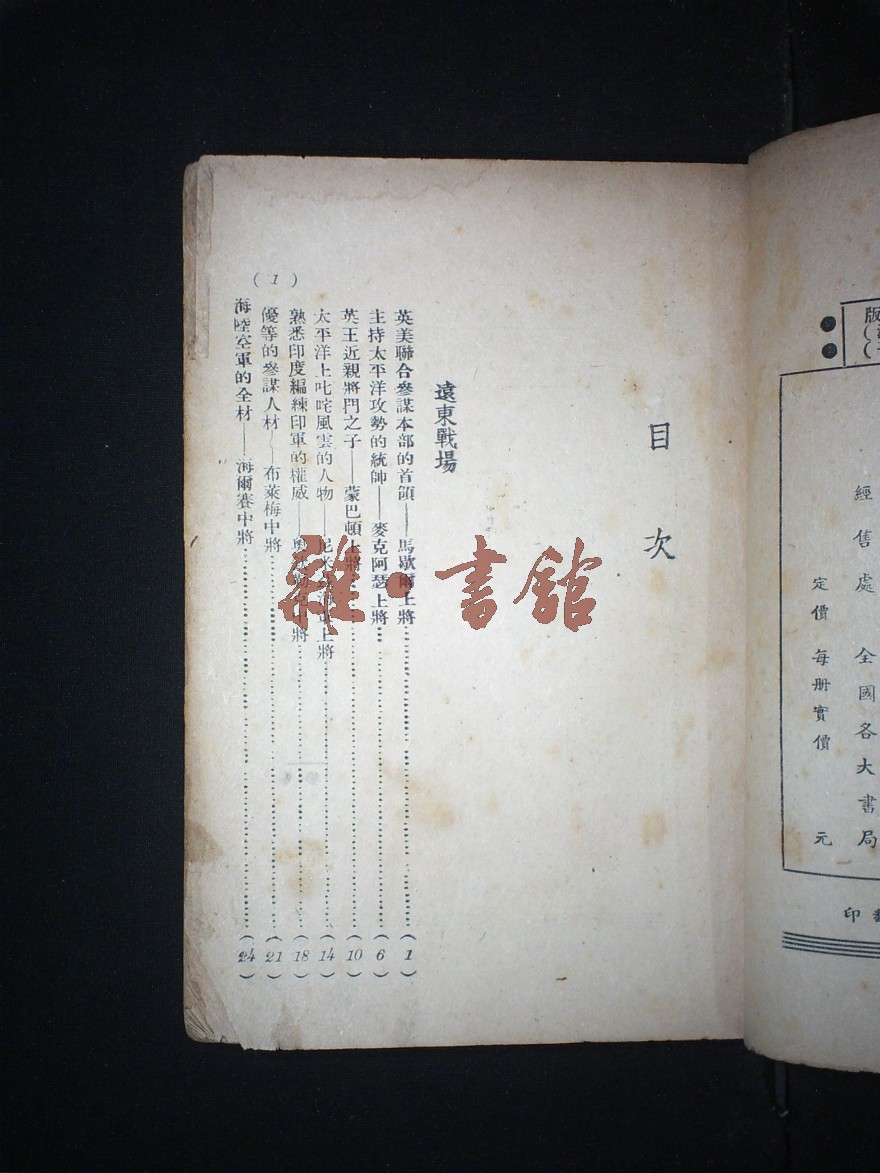 版
經售處 全國各大書局
定價 每册實價 元
印
目次
遠東戰場
英美聯合參謀本部的首領——馬歇爾上將……(1)
主持太平洋攻勢的統帥——麥克阿瑟上將……(6)
英王近親將門之子——蒙巴頓上將……(10)
太平洋上叱咤風雲的人物——尼米 海軍上將……(14)
熟悉印度編練印軍的權威——奧 中將……(18)
優等的參謀人材——布萊梅中將……(21)
海陸空軍的全材——海爾賽中將……(24)
(1)
雜·書舘